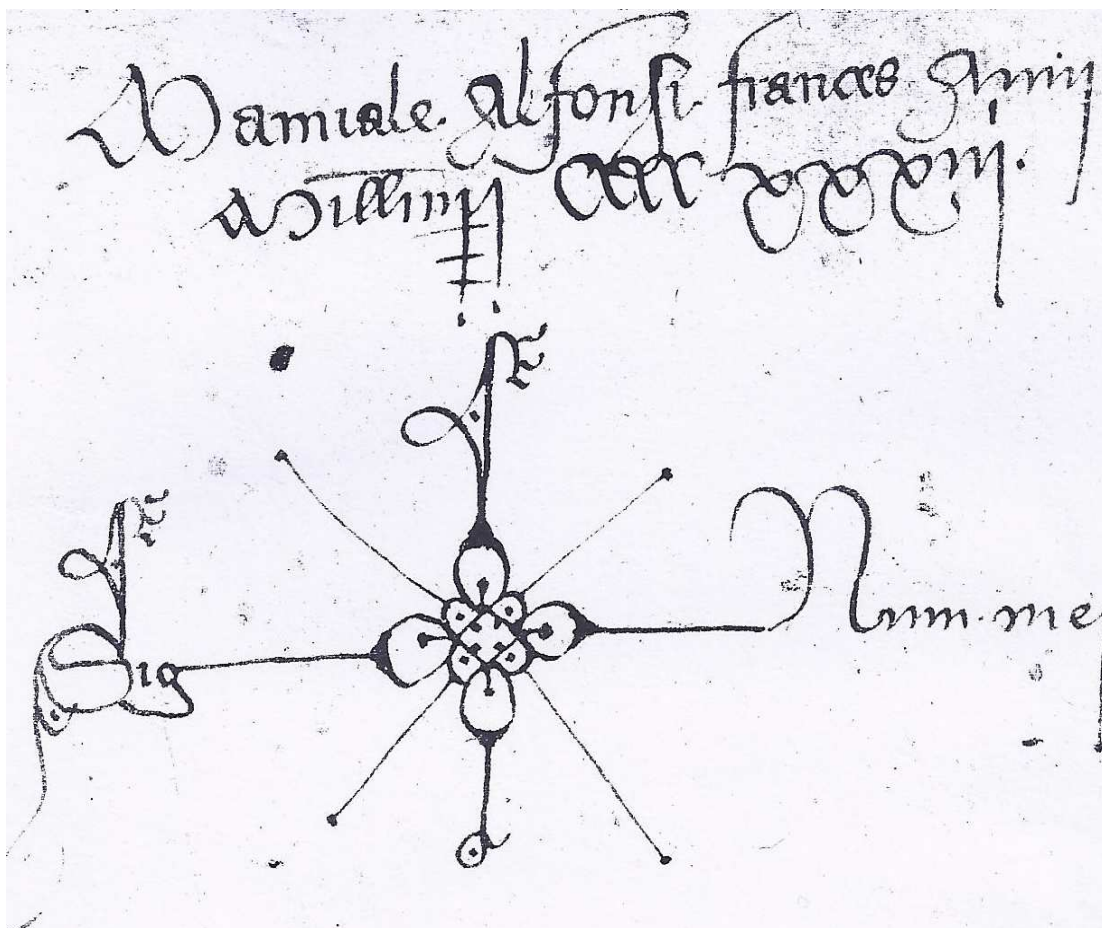 Manuale. Alfonsi. frances Anni
Millimi CCCC xxxiii.
Sig Num. me